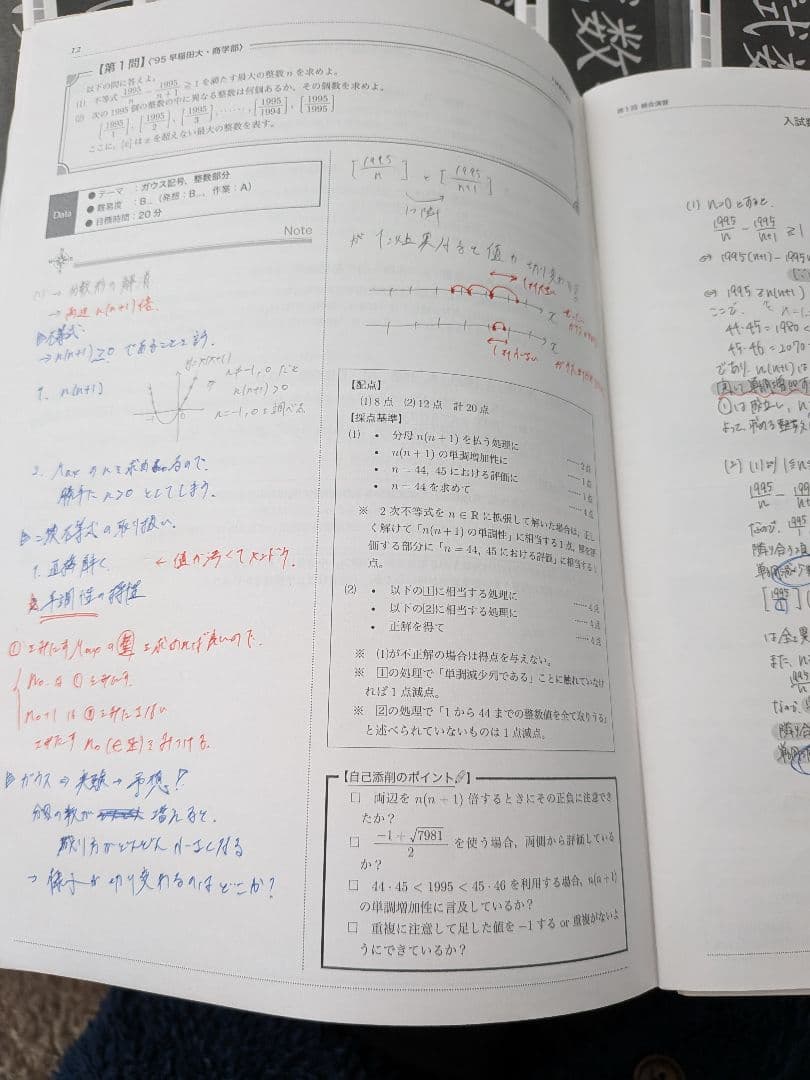 12
【第1問】〈'95 早稲田大・商学部〉
以下の問に答えよ。
(1) 不等式 1995/n − 1995/(n+1) ≧ 1 を満たす最大の整数 n を求めよ。
(2) 次の 1995 個の整数の中に異なる整数は何個あるか。その個数を求めよ。
[1995/1], [1995/2], [1995/3], ……, [1995/1994], [1995/1995]
ここに，[x] は x を超えない最大の整数を表す。
Data
● テーマ ：ガウス記号，整数部分
● 難易度 ：B..（発想：B..，作業：A）
● 目標時間：20分
Note
→ 両辺 n(n+1) 倍.
▷不等式
→ n(n+1) ≧ 0 であること
1. n(n+1)
y=x(x+1)
n≠−1, 0 だと
n(n+1)>0
n=−1, 0 を調べる
2. Max の n を求めるので、
勝手に n>0 としてしまう.
▷二次不等式の取り扱い.
1. 直接解く. ← 値が汚くてメンドウ.
単調性の
① をみたす Max の を求めれば良いので.
n₀ は ① をみたす
n₀+1 は ① をみたさない
をみたす n₀ (∈Z) をみつける.
▷ガウス ⇒ 実験 → 予想!
分母の数が 増えると.
→ 様子が切り変わるのはどこか?
[1995/n] と [1995/n+1]
が 1 以上異なると値が切り変わる
x
x
【配点】
(1) 8 点 (2) 12 点 計 20 点
【採点基準】
(1) • 分母 n(n+1) を払う処理に ……2点
• n(n+1) の単調増加性に ……1点
• n = 44, 45 における評価に ……1点
• n = 44 を求めて ……4点
※ 2 次不等式を n ∈ R に拡張して解いた場合は，正し
く解けて「n(n+1) の単調性」に相当する 1 点，値を評
価する部分に「n = 44, 45 における評価」に相当する 1
点。
(2) • 以下の1に相当する処理に ……4点
• 以下の2に相当する処理に ……4点
• 正解を得て ……4点
※ (1)が不正解の場合は得点を与えない。
※ 1の処理で「単調減少列である」ことに触れていなけ
れば 1 点減点。
※ 2の処理で「1 から 44 までの整数値を全て取りうる」
と述べられていないものは 1 点減点。
【自己添削のポイント】
□ 両辺を n(n+1) 倍するときにその正負に注意でき
たか？
□ (−1+√7981)/2 を使う場合，両側から評価している
か？
□ 44・45 < 1995 < 45・46 を利用する場合，n(n+1)
の単調増加性に言及しているか？
□ 重複に注意して足した値を −1 する or 重複がないよ
うにできているか？
第1回 総合演習
(1) n>0 とすると.
1995/n − 1995/n+1 ≧ 1
⇔ 1995(n+1) − 1995n
⇔ 1995 ≧ n(n+1)
ここで.
44・45 = 1980 <
45・46 = 2070
であり n(n+1) は
①は成立し, n
(2) (1) より 1≦n≦
1995/n −
隣り合う
また, n
隣り合う